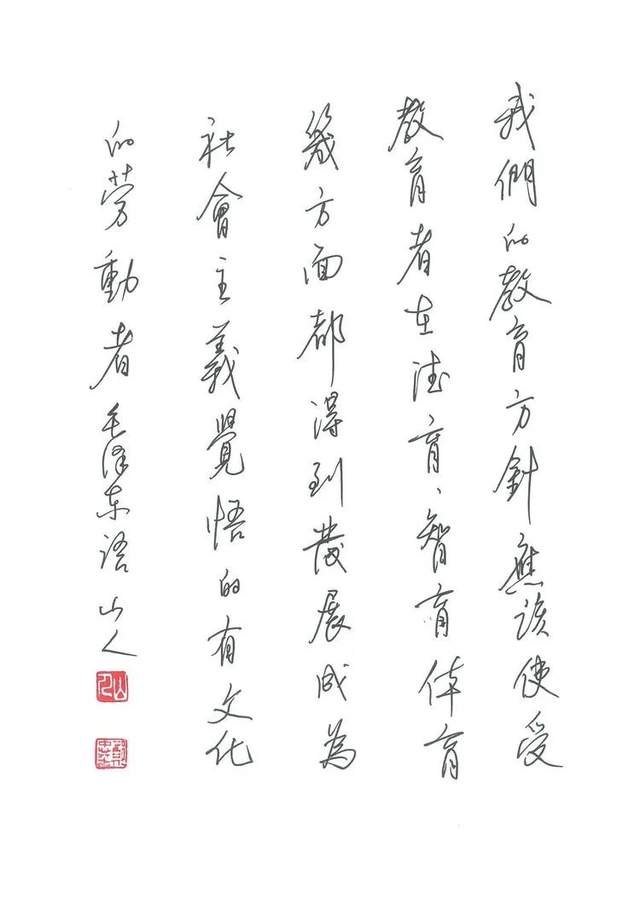 我們的教育方針應該使受
教育者在德育、智育体育
幾方面都得到發展成為
社會主義覺悟的有文化
的勞動者毛澤东语山人
山人